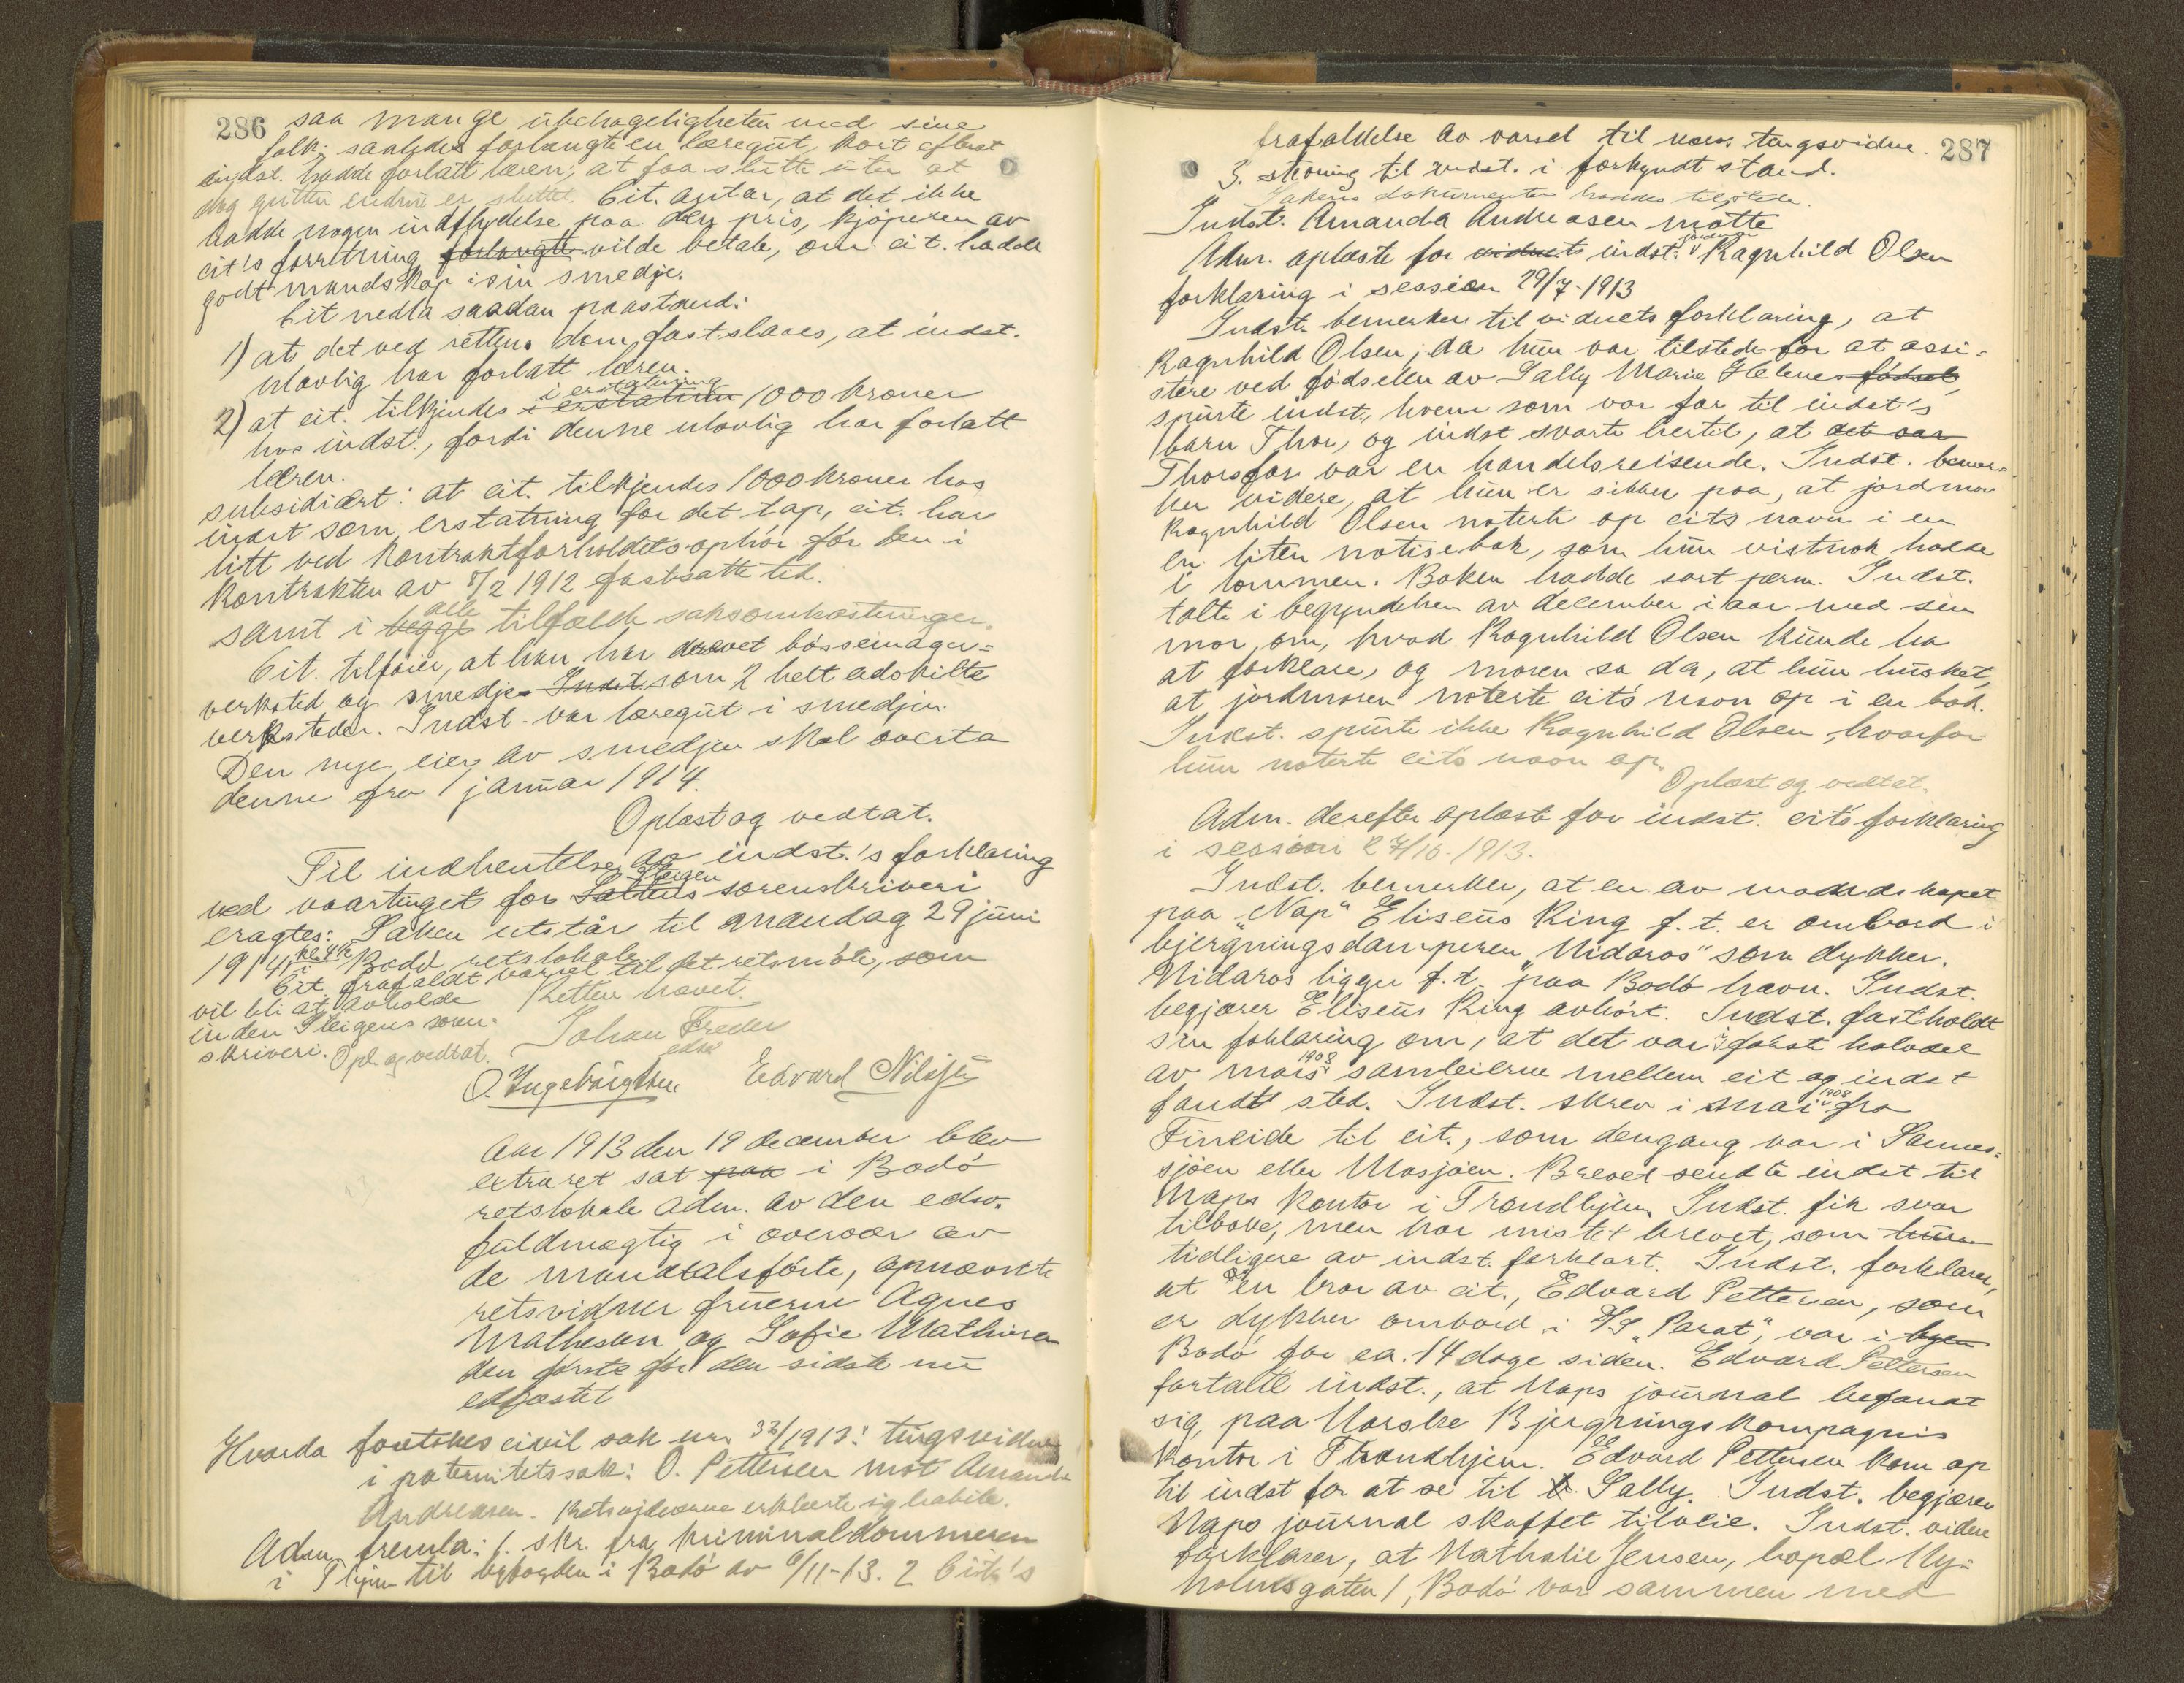 286
saa mange übehageligheter med sine
folk; saaledes forlangte en læregüt, kort efter at
indst. hadde forlatt læren, at faa slutte üten at
dog gütten endnü er sluttet. Cit. antar, at det ikke
hadde nogen indflydelse paa den pris, kjøperen av
cit's forretning forlangte vilde betale, om cit. hadde
godt mandskap i sin smedje.
Cit nedla saadan paastand:
1) at det ved rettens dom fastslaaes, at indst.
ulovlig har forlatt læren.
i erstatning
2) at cit. tilkjendes i erstatnin 1000 kroner
hos indst., fordi denne ulovlig har forlatt
læren.
subsidiært: at cit. tilkjendes 1000 kroner hos
indst som erstatning for det tap, cit. har
litt ved kontraktforholdets ophør før den i
kontrakten av 8/2 1912 fastsatte tid.
alle
samt i begge tilfælde saksomkostninger.
Cit. tilføier, at han har drevet bøssemager=
verksted og smedje Indst som 2 helt adskilte
verksteder. Indst. var læregüt i smedjen.
Den nye eier av smedjen skal overta
denne fra 1 janüar 1914.
Oplæst og vedtat.
Til indhentelse av indst.'s forklaring
Steigen
ved vaartinget for Saltens sorenskriveri
eragtes: Saken utstår til mandag 29 jüni
kl. 4 ½
1914 i Bodø retslokale
Cit. frafaldt varsel til det retsmøte, som
vil bli at avholde Retten hævet.
inden Steigens soren-
skriveri. Opl. og vedtat. Johan Freder
edsv
O. Ingebrigtsen Edvard Nilsen
Aar 1913 den 19 december blev
extraret sat paa i Bodø
retslokale adm. av den edsv.
füldmægtig i overvær av
de mandtalsførte, opnævnte
retsvidner früerne Agnes
Mathesen og Sofie Mathisen
den første før den sidste nü
edfæstet
Hvorda foretokes civil sak nr. 33/1913: tingsvidne
i paternitetssak: O. Pettersen mot Amanda
Andreasen. Retsvidnerne erklærte sig habile.
Adm. fremla: 1. skr. fra kriminaldommeren
i Thjem til byfogden i Bodø av 6/11-13. 2 Cit's
287
frafaldelse av varsel til nærv. tingsvidne.
3. stevning til indst. i forkyndt stand.
Sakens dokümenter haddes tilstede.
Indst. Amanda Andreasen møtte
jordmor
Adm. oplæste for vidnets indst. Ragnhild Olsen
forklaring i session 29/7-1913
Indst. bemerker til vidnets forklaring, at
Ragnhild Olsen, da hün var tilstede for at assi=
stere ved fødselen av Sally Marie Helene fødsel,
spürte indst., hvem som var far til indst's
barn Thor, og indst svarte hertil, at det var
Thors far var en handelsreisende. Indst. bemer=
ker videre, at hün er sikker paa, at jordmor
Ragnhild Olsen noterte op cits navn i en
en liten notisebok, som hün vistnok hadde
i lommen. Boken hadde sort perm. Indst.
talte i begyndelsen av december i aar med sin
mor, om, hvad Ragnhild Olsen künde ha
at forklare, og moren sa da, at hün hüsket,
at jordmoren noterte cit's navn op i en bok.
Indst. spürte ikke Ragnhild Olsen, hvorfor
hün noterte cit's navn op.
Oplæst og vedtat.
Adm. derefter oplæste for indst. cit's forklaring
i session 27/10-1913.
Indst. bemerker, at en av mandskapet
paa "Nap" Elisëus Ring f.t. er ombord i
bjergningsdamperen "Nidaros" som dykker.
Nidaros ligger f.t. paa Bodø havn. Indst.
begjærer Elisëus Ring avhørt. Indst. fastholdt
sin foklaring om, at det var i første halvdel
1908
av mais samleierne mellem cit og indst
1908
fandt sted. Indst. skrev i mai fra
Finneide til cit., som dengang var i Sannes=
sjøen eller Mosjøen. Brevet sendte indst til
Naps kontor i Trondhjem. Indst. fik svar
tilbake, men har mistet brevet, som hün
tidligere av indst. forklart. Indst. forklarer,
at en bror av cit., Edvard Pettersen, som
er dykker ombord i D/S "Parat", var i byen
Bodø for ca. 14 dage siden. Edvard Pettersen
fortalte indst., at Naps joürnal befandt
sig, paa Norske Bjergningskompagnis
kontor i Trondhjem. Edvard Pettersen kom op
til indst for at se til Sally. Indst. begjærer
Naps joürnal skaffet tilveie. Indst. videre
forklarer, at Nathalie Jensen, bopæl Ny=
holmsgaten 1, Bodø var sammen med